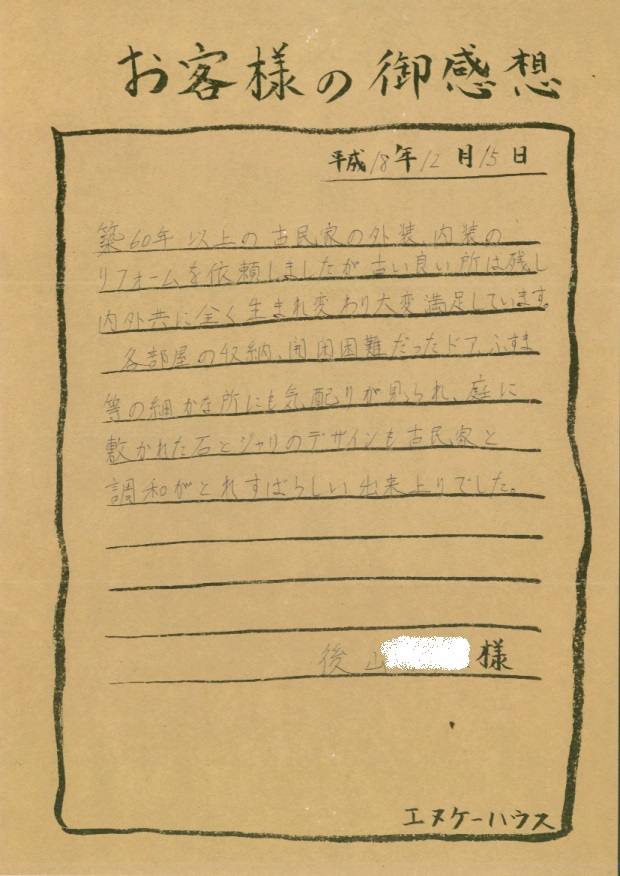 お客様の御感想
平成18年12月15日
築60年以上の古民家の外装、内装の
リフォームを依頼しましたが古い良い所は残し
内外共に全く生まれ変わり大変満足しています。
各部屋の収納、開閉困難だったドア、ふすま
等の細かな所にも気配りが見られ、庭に
敷かれた石とジャリのデザインも古民家と
調和がとれすばらしい出来上りでした。
後 様
エヌケーハウス